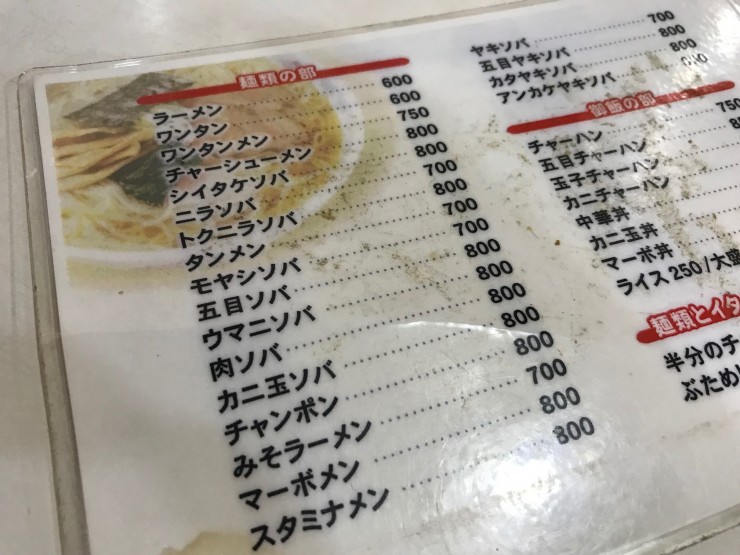 麺類の部
ラーメン 600
ワンタン 600
ワンタンメン 750
チャーシューメン 800
シイタケソバ 800
ニラソバ 700
トクニラソバ 800
タンメン 700
モヤシソバ 700
五目ソバ 800
ウマニソバ 800
肉ソバ 800
カニ玉ソバ 800
チャンポン 800
みそラーメン 700
マーボメン 800
スタミナメン 800
ヤキソバ 700
五目ヤキソバ 800
カタヤキソバ 800
アンカケヤキソバ
御飯の部
チャーハン 750
五目チャーハン
玉子チャーハン
カニチャーハン
中華丼
カニ玉丼
マーボ丼
ライス250/大盛
麺類とイタ
半分のチ
ぶため